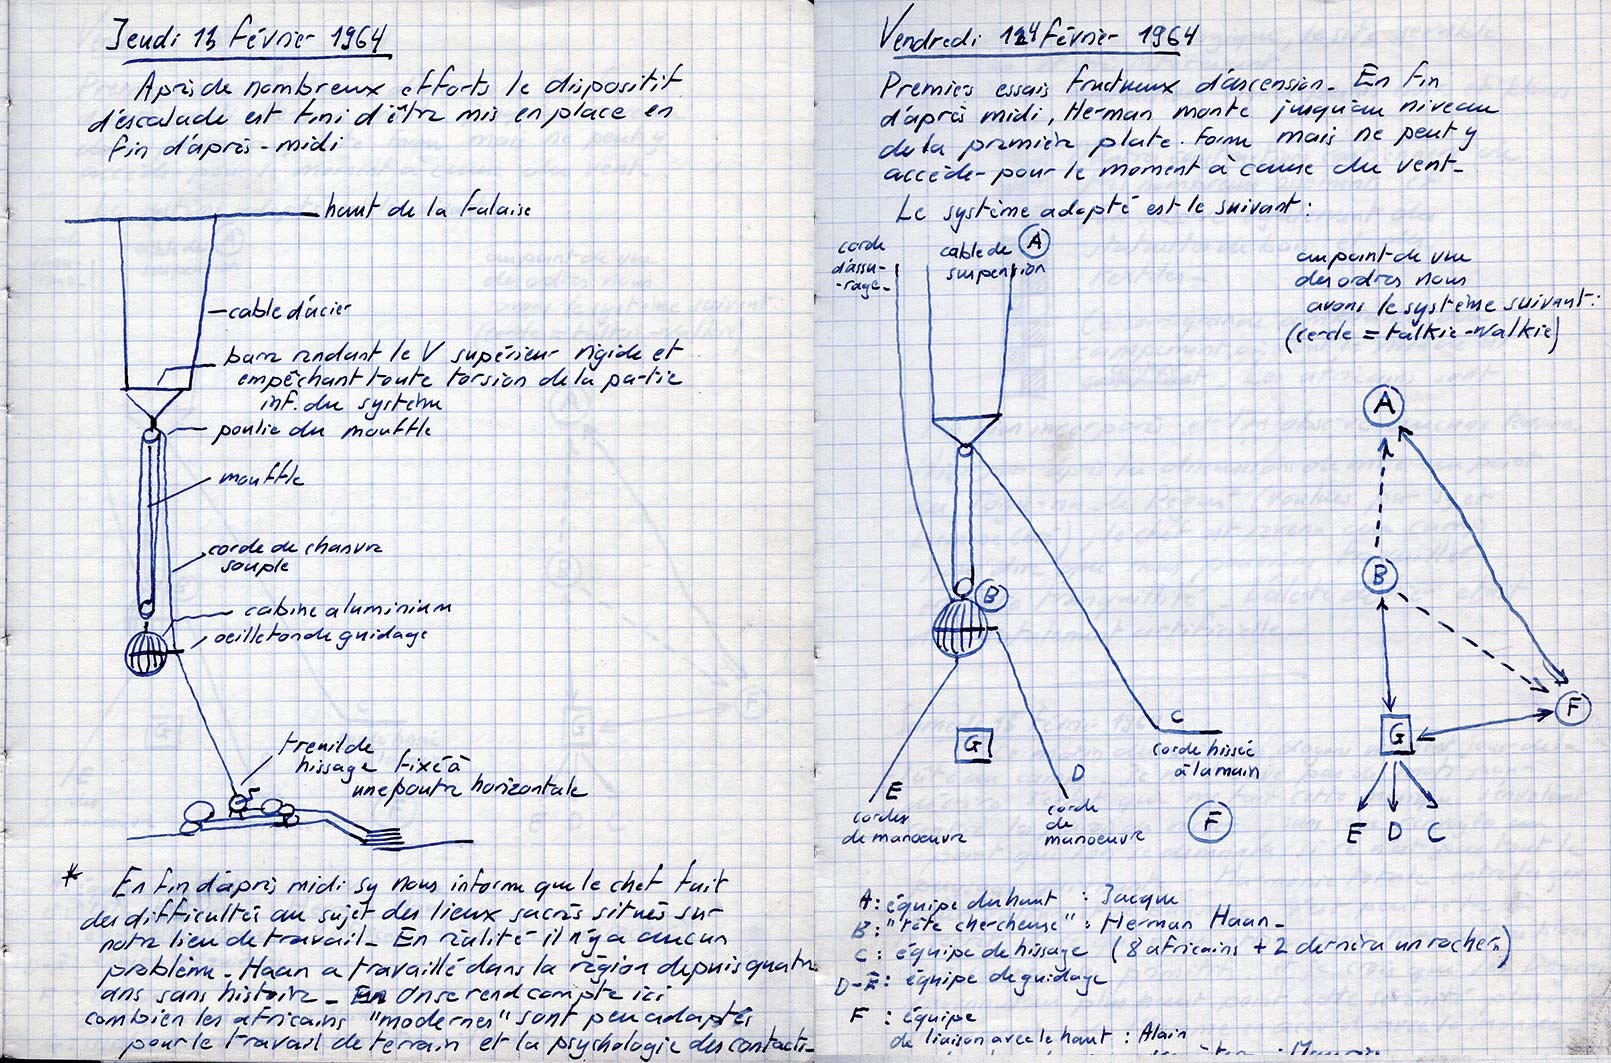 Jeudi 13 février 1964
Après de nombreux efforts le dispositif
d'escalade est fini d'être mis en place en
fin d'après-midi
haut de la falaise
cable d'acier
barre rendant le V supérieur rigide et
empêchant toute torsion de la partie
inf. du système
poulie du mouffle
mouffle
corde de chanvre
souple
cabine aluminium
oeilleton de guidage
treuil de
hissage fixé à
une poutre horizontale
* En fin d'après midi Sy nous informe que le chef fait
des difficultés au sujet des lieux sacrés situés sur
notre lieu de travail_ En réalité il n'y a aucun
problème_ Haan a travaillé dans la région depuis quatre
ans sans histoire_ On se rend compte ici
combien les africains "modernes" sont peu adaptés
pour le travail de terrain et la psychologie des contacts_
Vendredi 14 février 1964
Premiers essais fructueux d'ascension_ En fin
d'après midi, Herman monte jusqu'au niveau
de la première plate-forme mais ne peut y
accéder pour le moment à cause du vent_
Le système adopté est le suivant :
corde
d'assu-
-rage_
cable de A
suspension
B
G
C
corde hissée
à la main
E
cordes
de manoeuvre
D
corde
de
manoeuvre
F
au point de vue
des ordres nous
avons le système suivant :
(cercle = talkie-walkie)
A
B
F
G
E D C
A : équipe du haut : Jacque
B : "tête chercheuse" : Herman Haan_
C : équipe de hissage (8 africains + 2 derrière un rocher)
D-E : équipe de guidage
F : équipe
de liaison avec le haut : Alain